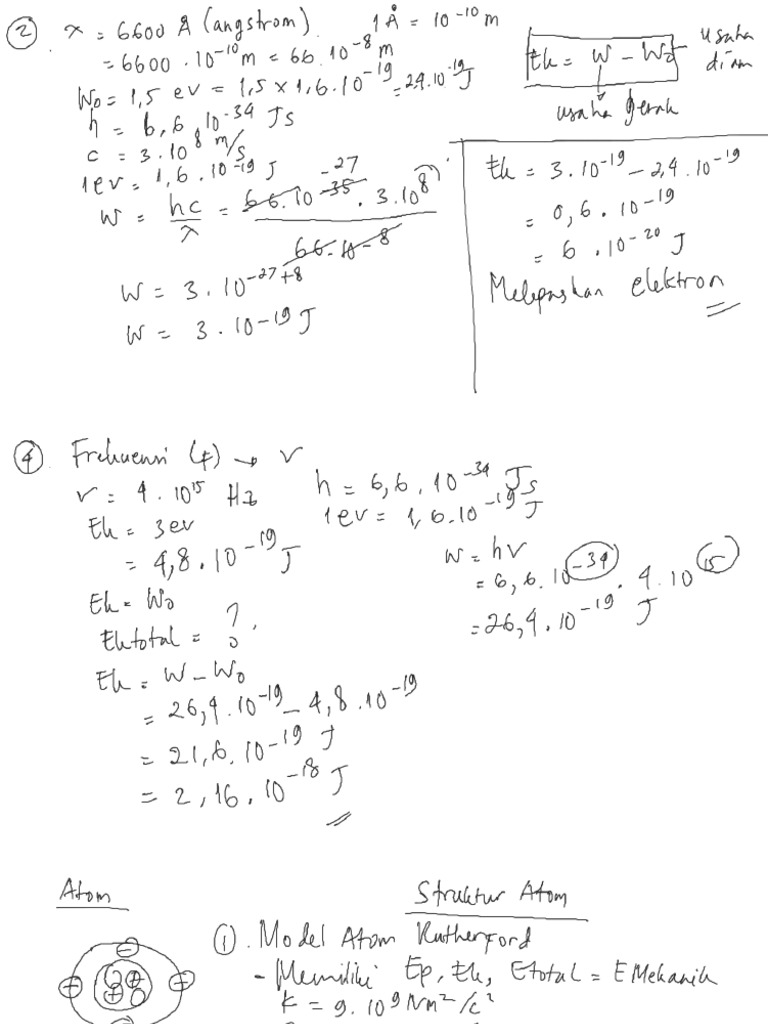 ② λ = 6600 Å (angstrom). 1 Å = 10⁻¹⁰ m
= 6600 . 10⁻¹⁰ m = 66. 10⁻⁸ m
W₀ = 1,5 ev = 1,5 x 1,6.10⁻¹⁹ = 2,4.10⁻¹⁹ J
h = 6,6 . 10⁻³⁴ Js
c = 3.10⁸ m/s
1ev = 1,6 . 10⁻¹⁹ J
W = hc/λ = 66.10⁻³⁵ ⁻²⁷ . 3.10⁸ / 66.10⁻⁸
W = 3.10⁻²⁷⁺⁸
W = 3.10⁻¹⁹ J
Ek = W - W₀ usaha diam
usaha gerak
Ek = 3.10⁻¹⁹ - 2,4.10⁻¹⁹
= 0,6 . 10⁻¹⁹
= 6 . 10⁻²⁰ J
Melepaskan elektron
④ Frekuensi (f) → v
v = 4.10¹⁵ Hz
Ek = 3ev
= 4,8.10⁻¹⁹ J
Ek = W₀
Ektotal = ?
Ek = W - W₀
= 26,4.10⁻¹⁹ - 4,8.10⁻¹⁹
= 21,6.10⁻¹⁹ J
= 2,16.10⁻¹⁸ J
h = 6,6 . 10⁻³⁴ Js
1ev = 1,6.10⁻¹⁹ J
W = hv
= 6,6.10⁻³⁴ . 4.10¹⁵
= 26,4.10⁻¹⁹ J
Atom
Struktur Atom
① . Model Atom Rutherford
- Memiliki Ep, Ek, Etotal = EMekanik
K = 9.10⁹ Nm²/c²